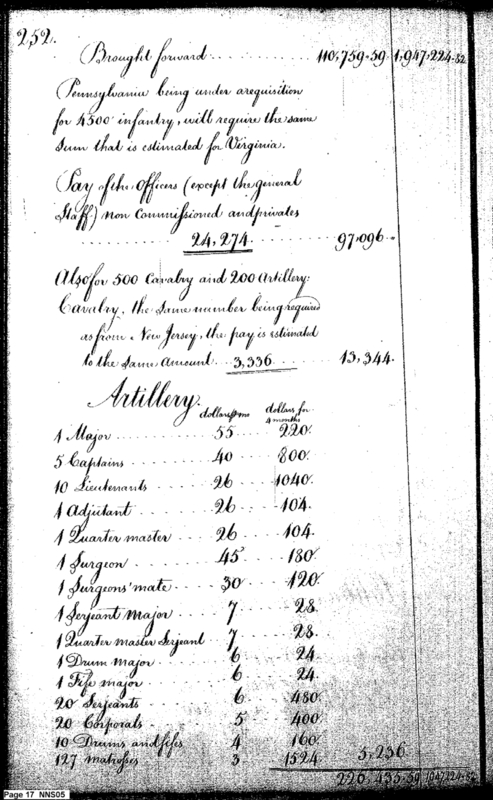 252.
Brought forward 110,759.59 1,947.224.52
Pennsylvania being under a requisition
for 4500 infantry, will require the same
Sum that is estimated for Virginia.
Pay of the Officers (except the general
Staff) non Commissioned and privates
24,274 97,096
Also for 500 Cavalry and 200 Artillery:
Cavalry, the same number being required
as from New Jersey, the pay is estimated
to the same amount 3,336 13,344.
Artillery.
dollars pr mo dollars for 4 months
1 Major 55 220.
5 Captains 40 800.
10 Lieutenants 26 1040.
1 Adjutant 26 104.
1 Quarter master 26 104.
1 Surgeon 45 180.
1 Surgeons' mate 30 120.
1 Serjeant major 7 28.
1 Quarter master Serjeant 7 28.
1 Drum major 6 24.
1 Fife major 6 24.
20 Serjeants 6 480.
20 Corporals 5 400.
10 Drums and fifes 4 160.
127 matrosses 3 1524. 5,236
226,435.59 1947.224.52
Page 17 NNS05